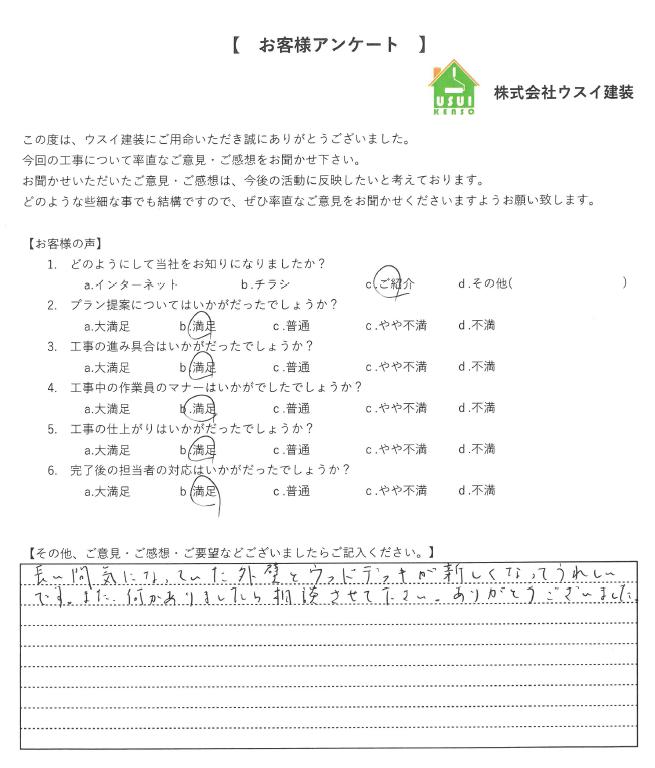 【 お客様アンケート 】
USUI
KENSO
株式会社ウスイ建装
この度は、ウスイ建装にご用命いただき誠にありがとうございました。
今回の工事について率直なご意見・ご感想をお聞かせ下さい。
お聞かせいただいたご意見・ご感想は、今後の活動に反映したいと考えております。
どのような些細な事でも結構ですので、ぜひ率直なご意見をお聞かせくださいますようお願い致します。
【お客様の声】
1. どのようにして当社をお知りになりましたか？
a.インターネット b.チラシ c.ご紹介 d.その他( )
2. プラン提案についてはいかがだったでしょうか？
a.大満足 b.満足 c.普通 c.やや不満 d.不満
3. 工事の進み具合はいかがだったでしょうか？
a.大満足 b.満足 c.普通 c.やや不満 d.不満
4. 工事中の作業員のマナーはいかがでしたでしょうか？
a.大満足 b.満足 c.普通 c.やや不満 d.不満
5. 工事の仕上がりはいかがだったでしょうか？
a.大満足 b.満足 c.普通 c.やや不満 d.不満
6. 完了後の担当者の対応はいかがだったでしょうか？
a.大満足 b.満足 c.普通 c.やや不満 d.不満
【その他、ご意見・ご感想・ご要望などございましたらご記入ください。】
長い間気になっていた外壁とウッドデッキが新しくなってうれしい
です。また何かありましたら相談させて下さい。ありがとうございました。